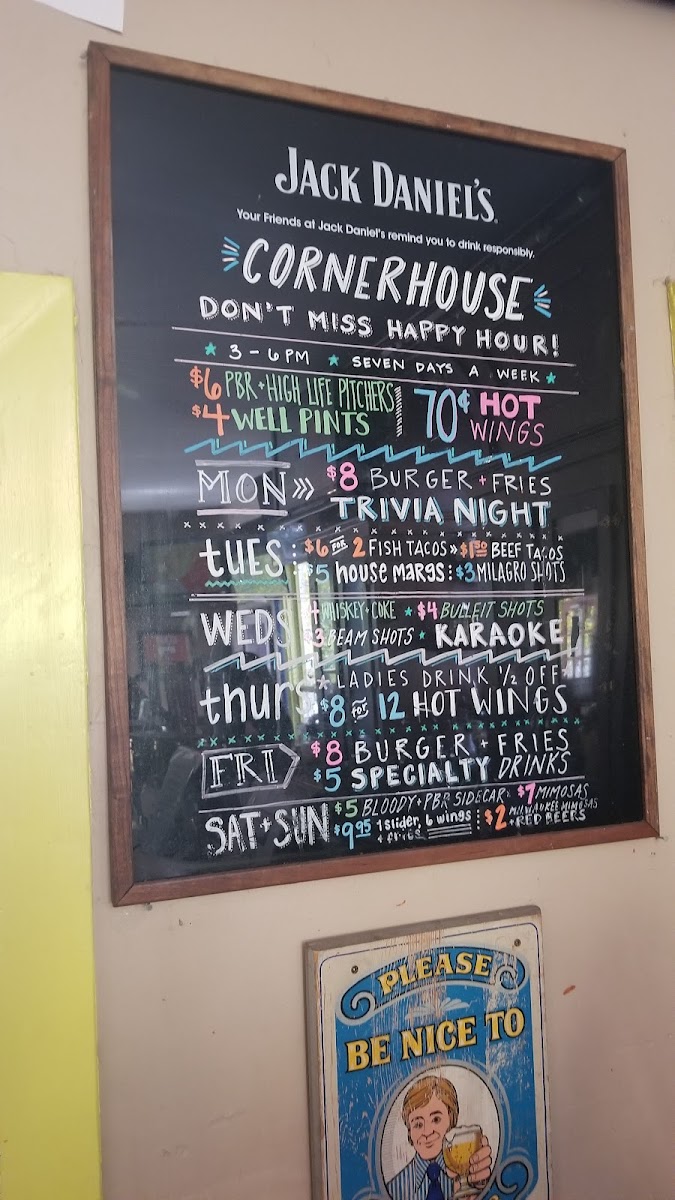 JACK DANIEL'S
Your Friends at Jack Daniel's remind you to drink responsibly.
CORNERHOUSE
DON'T MISS HAPPY HOUR!
3-6PM ★ SEVEN DAYS A WEEK ★
$6 PBR + HIGH LIFE PITCHERS
$4 WELL PINTS
70¢ HOT WINGS
MON >>> $8 BURGER + FRIES
TRIVIA NIGHT
TUES: $6 FOR 2 FISH TACOS » $1.50 BEEF TACOS
$5 HOUSE MARGS: $3 MILAGRO SHOTS
WEDS $4 WHISKEY + COKE ★ $4 BULLEIT SHOTS
$3 BEAM SHOTS ★ KARAOKE
thurs ★ LADIES DRINK 1/2 OFF
$8 FOR 12 HOT WINGS
FRI $8 BURGER + FRIES
$5 SPECIALTY DRINKS
SAT + SUN $5 BLOODY + PBR SIDECAR: $7 MIMOSAS
$9.95 1 slider, 6 wings + fries : $2 MILWAUKEE MIMOSAS + RED BEERS
PLEASE
BE NICE TO